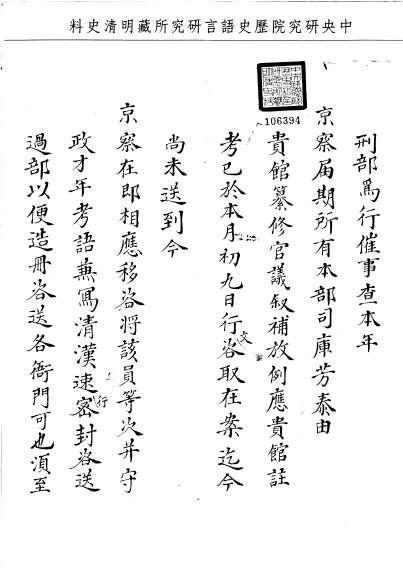 中央研究院歷史語言研究所藏明清史料
106394
刑部爲行催事查本年
京察届期所有本部司庫芳泰由
貴館纂修官議叙補放例應貴館註
考已於本月初九日行文咨取在案迄今
尚未送到今
京察在即相應移咨將該員等次并守
政才年考語兼寫清漢速行密封咨送
過部以便造冊咨送各衙門可也須至